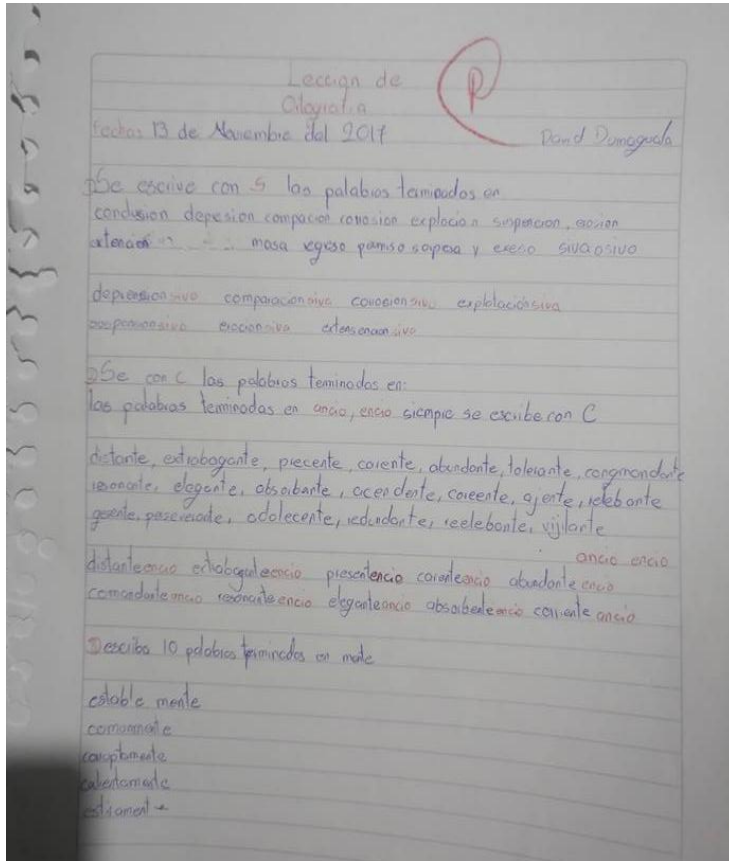 Leccion de
Ortografia
P
Fecha: 13 de Noviembre del 2017
David Dumaguala
1) Se escrive con S las palabras terminados en
conclusion depesion compacion corrosion explocion suspencion, erosion
extencion masa regreso permiso sopesa y exeso siva o sivo
depreesion sivo comparacion siva corrocion sivo explolación siva
suspencionsivo erocion siva extensencion sivo
2) Se con c las palabras teminados en:
las palabras teminadas en ancio, encio siempre se escribe con C
distante, extrabagante, precente, carente, abundante, tolerante, congmandante
resonante, elegante, absorbante, acendente, coreente, ajente, relebante
gerente, perseverade, adolecente, redundante, reelebante, vijilante
ancio encio
distanteancio extrabaganteencio presentencio carenteancio abundante encio
comandanteancio resonanteencio eleganteancio absorbenteencio corriente ancio
3) escriba 10 palabras terminadas en mente
estable mente
comunmente
corruptamente
cubiertamente